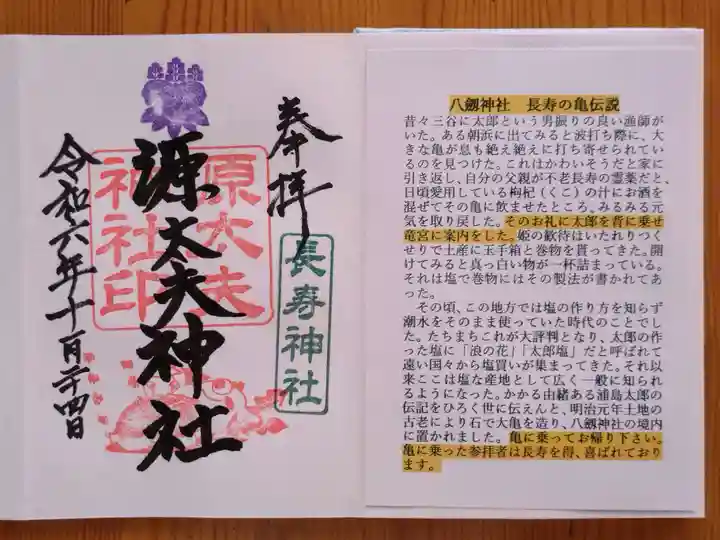 奉拝
長寿神社
源太夫神社
原太夫神社印
令和六年十一月二十四日
八剱神社　長寿の亀伝説
昔々三谷に太郎という男振りの良い漁師が
いた。ある朝浜に出てみると波打ち際に、大
きな亀が息も絶え絶えに打ち寄せられてい
るのを見つけた。これはかわいそうだと家に
引き返し、自分の父親が不老長寿の霊薬だと、
日頃愛用している枸杞（くこ）の汁にお酒を
混ぜてその亀に飲ませたところ、みるみる元
気を取り戻した。そのお礼に太郎を背に乗せ
竜宮に案内をした。姫の歓待はいたれりつく
せりで土産に玉手箱と巻物を貰ってきた。開
けてみると真っ白い物が一杯詰まっている。
それは塩で巻物にはその製法が書かれてあ
った。
その頃、この地方では塩の作り方を知らず
潮水をそのまま使っていた時代のことでし
た。たちまちこれが大評判となり、太郎の作
った塩に「浪の花」「太郎塩」だと呼ばれて
遠い国々から塩買いが集まってきた。それ以
来ここは塩な産地として広く一般に知られ
るようになった。かかる由緒ある浦島太郎の
伝記をひろく世に伝えんと、明治元年土地の
古老により石で大亀を造り、八劔神社の境内
に置かれました。亀に乗ってお帰り下さい。
亀に乗った参拝者は長寿を得、喜ばれており
ます。